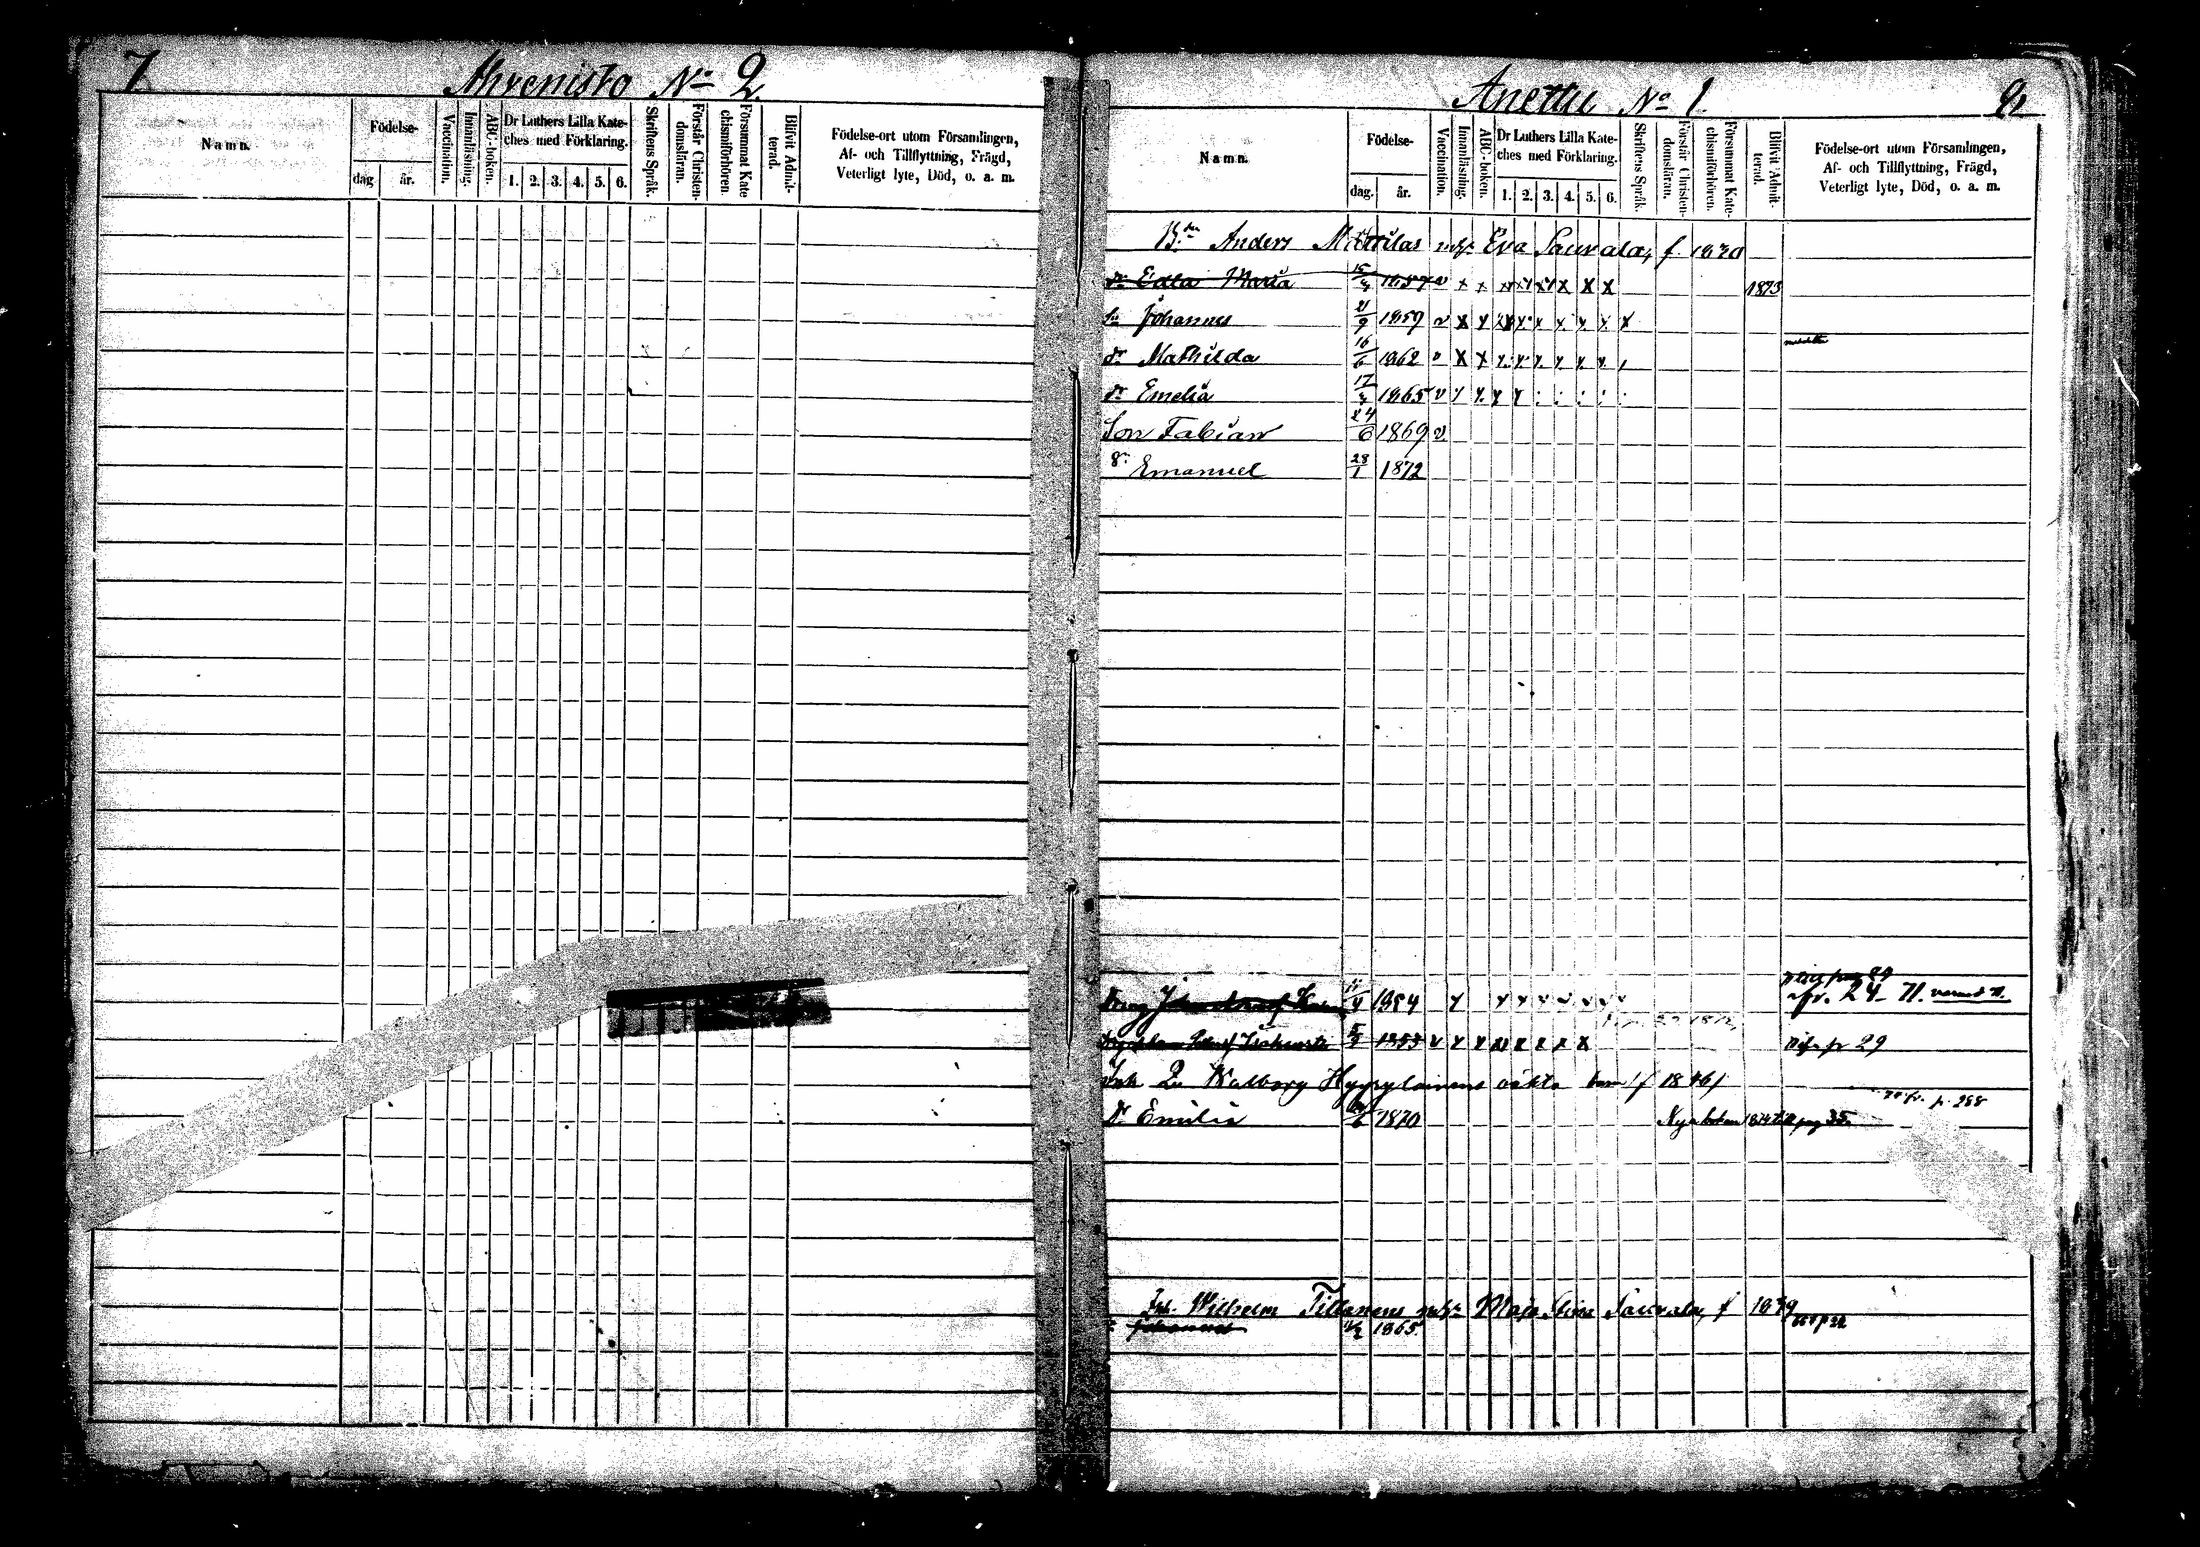 7
Ahvenisto No 2
Namn.
Födelse-
dag
år.
Vaccination.
Innanläsning.
ABC-boken.
Dr Luthers Lilla Kate-
ches med Förklaring.
1. 2. 3. 4. 5. 6.
Skriftens Språk.
Förstår Christen-
domsläran.
Försummat Kate
chismiförhören.
Blifvit Admit-
terad.
Födelse-ort utom Församlingen,
Af- och Tillflyttning, Frägd,
Veterligt lyte, Död, o. a. m.
Anettu No 1.
8
Namn.
Födelse-
dag.
år.
Vaccination.
Innanläsning.
ABC-boken.
Dr Luthers Lilla Kate-
ches med Förklaring.
1. 2. 3. 4. 5. 6.
Skriftens Språk.
Förstår Christen-
domsläran.
Försummat Kate-
chismiförhören.
Blifvit Admit-
terad.
Födelse-ort utom Församlingen,
Af- och Tillflyttning, Frägd,
Veterligt lyte, Död, o. a. m.
Anders Mattilas Eva Saurala, f. 1830
dr Edla Maria 1857 v x x x x x x x x 1873
sn Johannes 21/9 1859 v x x x x x x x x x
dr Mathilda 16/6 1862 v x x x x x x x x
dr Emelia 1865 v x x x x
Son Fabian 24/6 1869 v
Sn Emanuel 28/1 1872
Dräng 1854
fr. 24 - 71.
1853 v x x x x x x x
p 29
Inh. Walborg Hyyryläinens oäkta barn f 1846
p. 288
Dr Emilia 1870 Nya boken 1874 till pag 35
Inh. Wilhelm Tillanens Maja Stina Saurala, f
1865